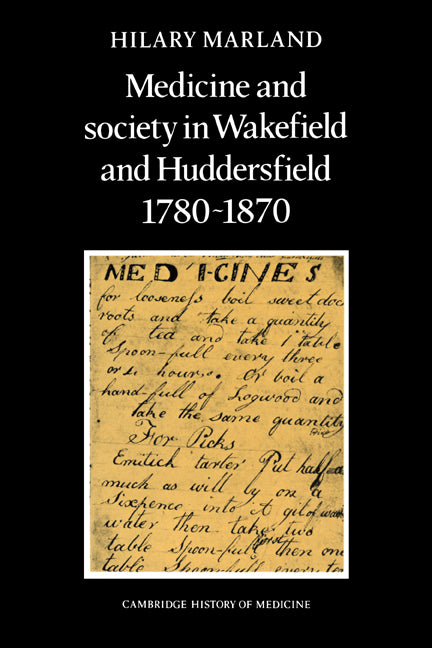 HILARY MARLAND
Medicine and
society in Wakefield
and Huddersfield
1780~1870
MED'I-CINES
for looseness boil sweet doc
roots and take a quantity
of tea and take 1 table
Spoon-full every three
or 4 hours. Or boil a
hand-full of Logwood and
take the same quantity
For Picks
Emitick tarter Put half
much as will ly on a
Sixpence into A gil of
water then take two
table Spoon-full first then one
table Spoonfull every
CAMBRIDGE HISTORY OF MEDICINE